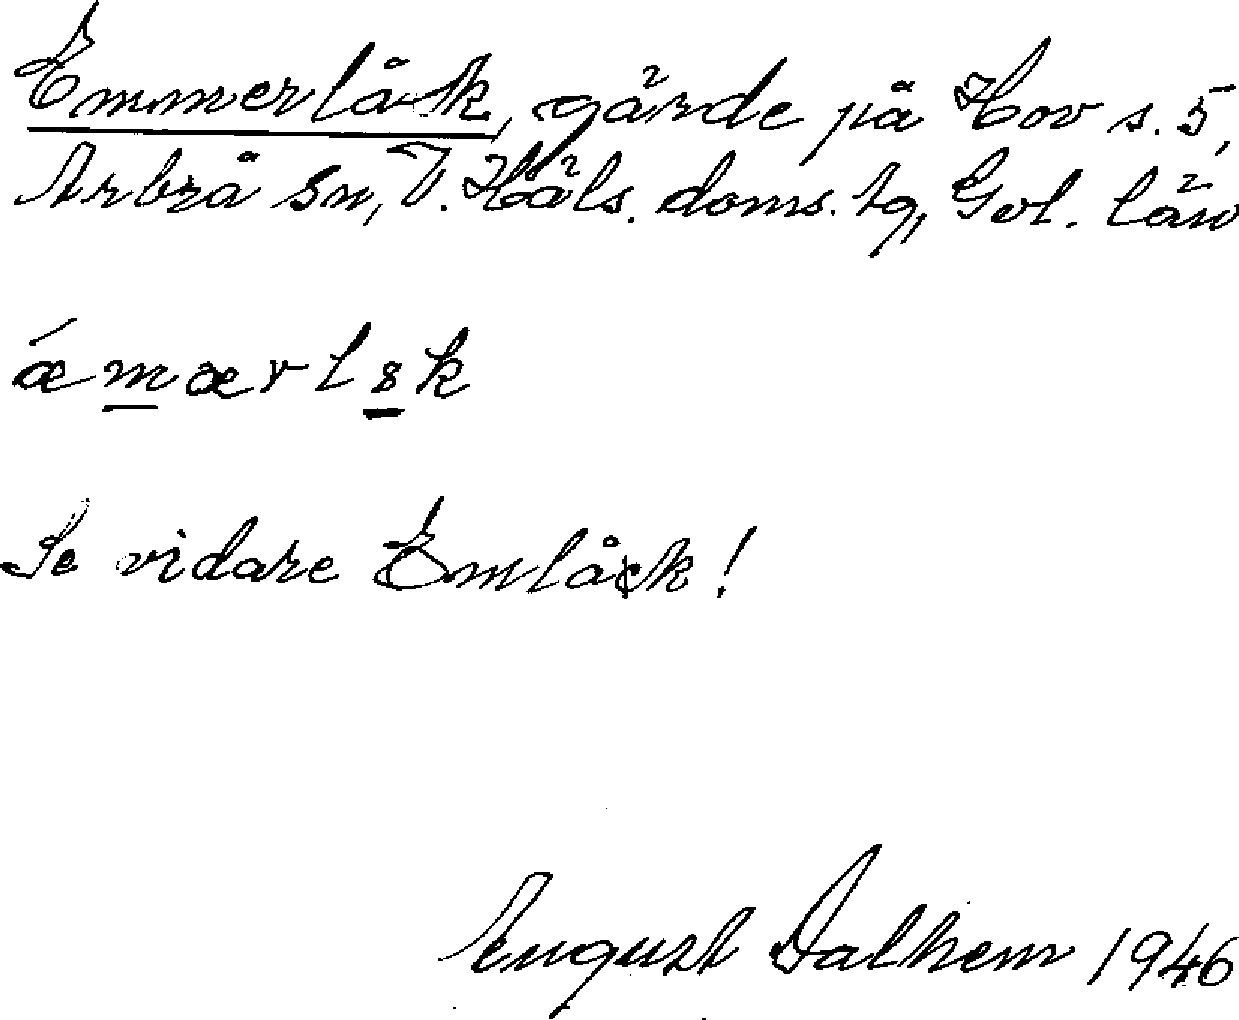 Emmerlåk, gärde på Hov s. 5,
Arbrå sn, V. Häls. doms. tg, Gvl. län
Se vidare Emlåk!
August Dalhem 1946